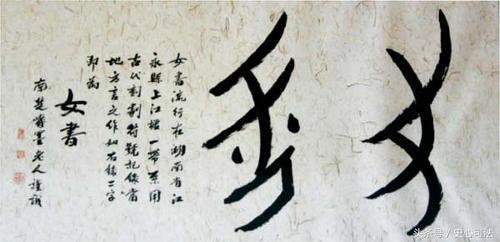 女書流行在湖南省江
永縣上江墟一帶系用
古代刻劃符號記錄當
地方言之作如右錄二字
即為
女書
南楚墨老人謹識
头条号 / 史心司法